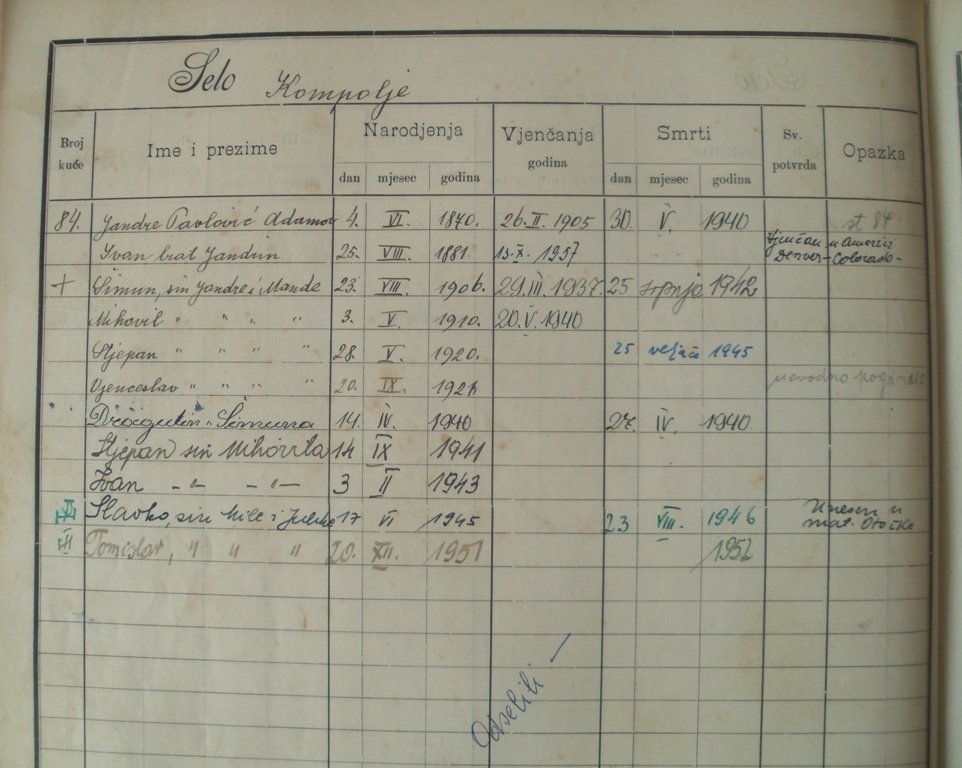 Selo Kompolje
Broj kuće Ime i prezime Narodjenja Vjenčanja godina Smrti Sv. potvrda Opazka
dan mjesec godina dan mjesec godina
84. Jandre Pavlović Adamov 4. VI. 1870. 26. II. 1905 30. V. 1940 st 84
Ivan brat Jandrin 25. VIII. 1881. 13. X. 1957 Vjenčan u Americi Denver-Colorado-
+ Šimun, sin Jandre i Mande 23. VIII. 1906. 29. III. 1937. 25 srpnja 1942
Mihovil " " " " 3. V. 1910. 20. V. 1940
Stjepan " " " " 28. V. 1920. 25 veljače 1945
Vjenceslav " " " " 20. IX. navodno poginuo
Dragutin " Šimuna 14. IV. 1940 27. IV. 1940
Stjepan sin Mihovila 14 IX 1941
Ivan -"- -"- 3 II 1943
Slavko, sin Mile i 17 VI 1945 23 VIII. 1946 Unesen u mat. Otočke
Tomislav, " " " 20. XII. 1951 1952
Odselili —